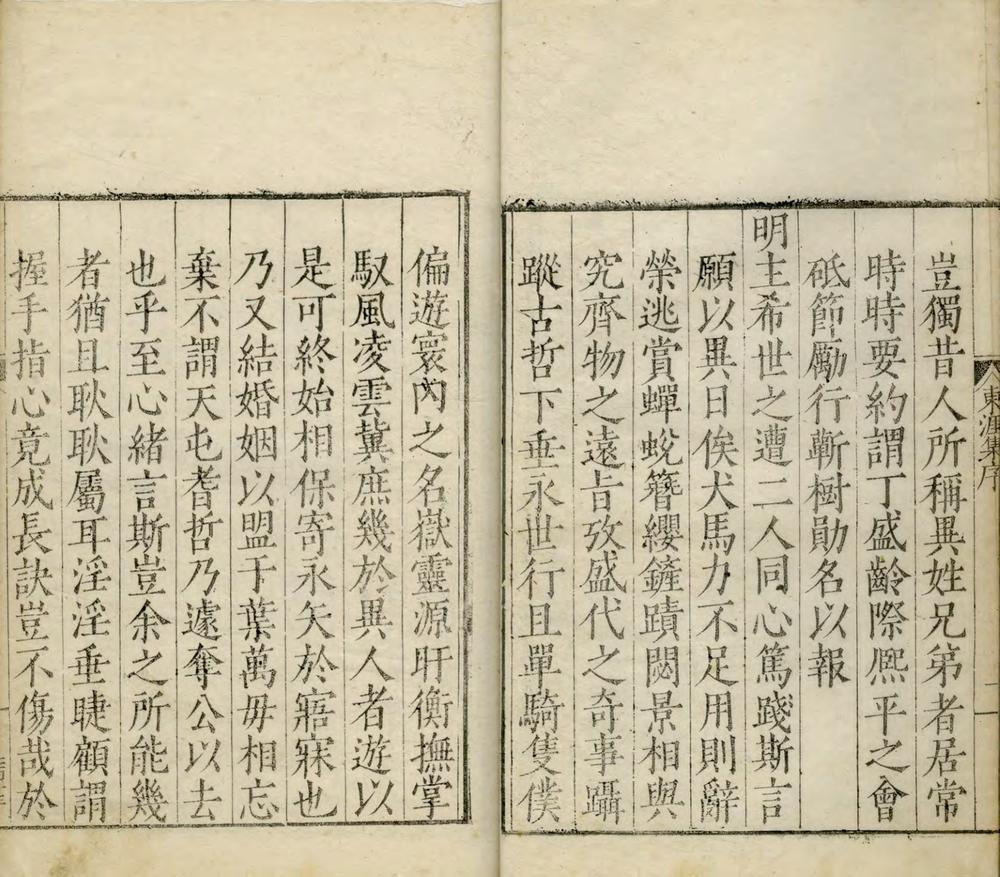 豈獨昔人所稱異姓兄弟者居常
時時要約謂丁盛齡際熈平之會
砥節勵行蘄樹勛名以報
明主希世之遭二人同心篤踐斯言
願以異日俟犬馬力不足用則辭
榮逃賞蟬蛻簪纓鏟蹟閟景相與
究齊物之遠旨攷盛代之奇事躡
蹤古哲下垂永世行且單騎隻僕
偏遊寰內之名嶽靈源盱衡撫掌
馭風凌雲冀庶幾於異人者遊以
是可終始相保寄永矢於寤寐也
乃又結婚姻以盟于葉萬毋相忘
棄不謂天屯耆哲乃遽奪公以去
也乎至心緒言斯豈余之所能幾
者猶且耿耿屬耳淫淫垂睫顧謂
握手指心竟成長訣豈不傷哉於
東涯集序
二